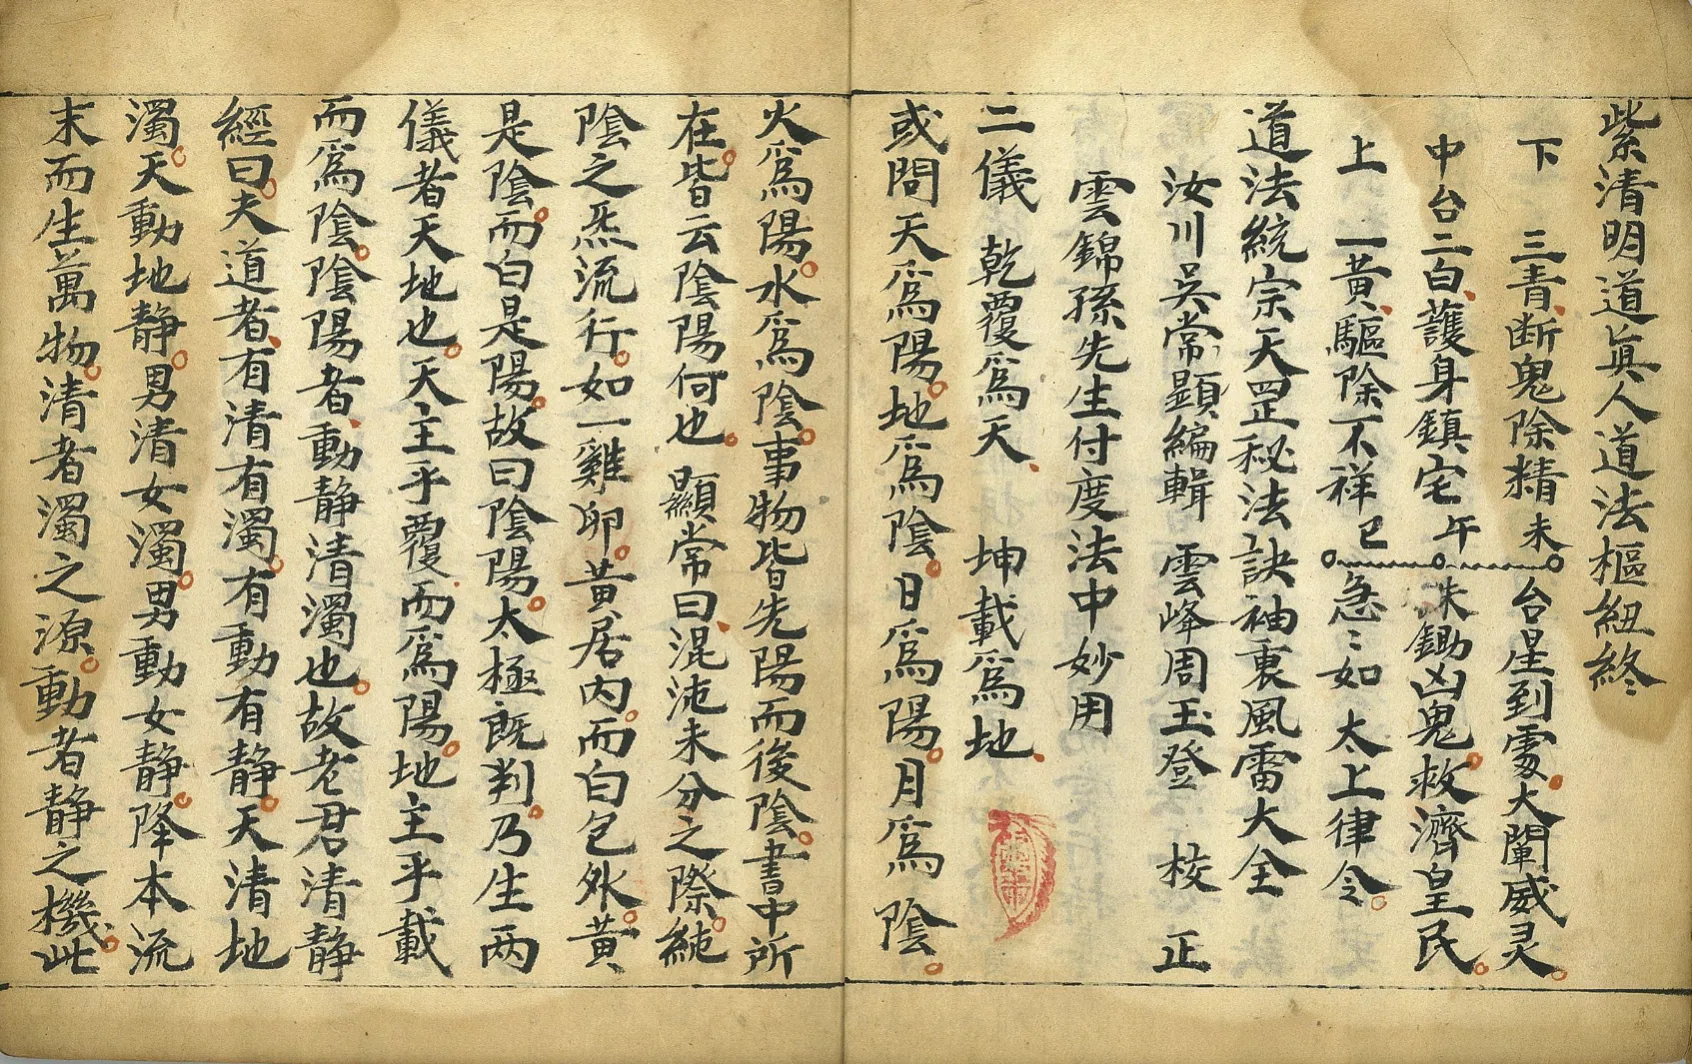 紫清明道眞人道法樞紐終
下　三青断鬼除精未　台星到處大闡威灵
中台二白護身鎮宅午　誅鋤凶鬼救濟皇民
上　一黃驅除不祥巳　急〻如　太上律令
道法統宗天罡秘法訣袖裏風雷大全
汝川吳常顕編輯　雲峰周玉登　校　正
雲錦孫先生付度法中妙用
二儀　乾覆爲天　坤載爲地
或問天爲陽地爲陰日爲陽月爲陰
火爲陽水爲陰事物皆先陽而後陰書中所
在皆云陰陽何也　顯常曰混沌未分之際純
陰之炁流行如一雞卵黃居内而白包外黃
是陰而白是陽故曰陰陽太極既判乃生两
儀者天地也天主乎覆而爲陽地主乎載
而爲陰陰陽者動静清濁也故老君清静
經曰夫道者有清有濁有動有静天清地
濁天動地静男清女濁男動女静降本流
末而生萬物清者濁之源動者静之機此